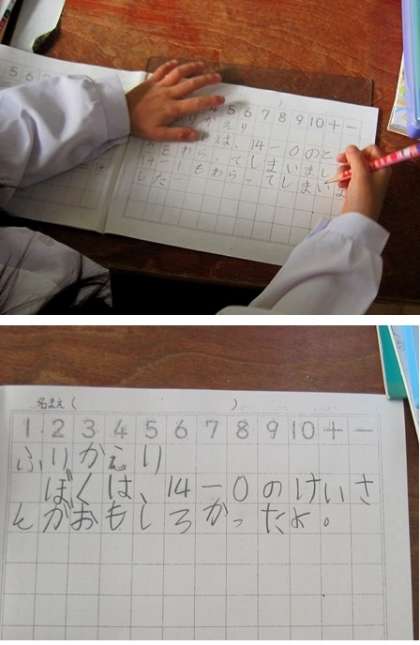 5 6
4 5 6 7 8 9 10 + −
かえり
は、14−0のと
わらってしまいまし
もわらってしまいま
した
名まえ( )
1 2 3 4 5 6 7 8 9 10 + −
ふりかえり
ぼくは、14−0のけいさ
んがおもしろかったよ。